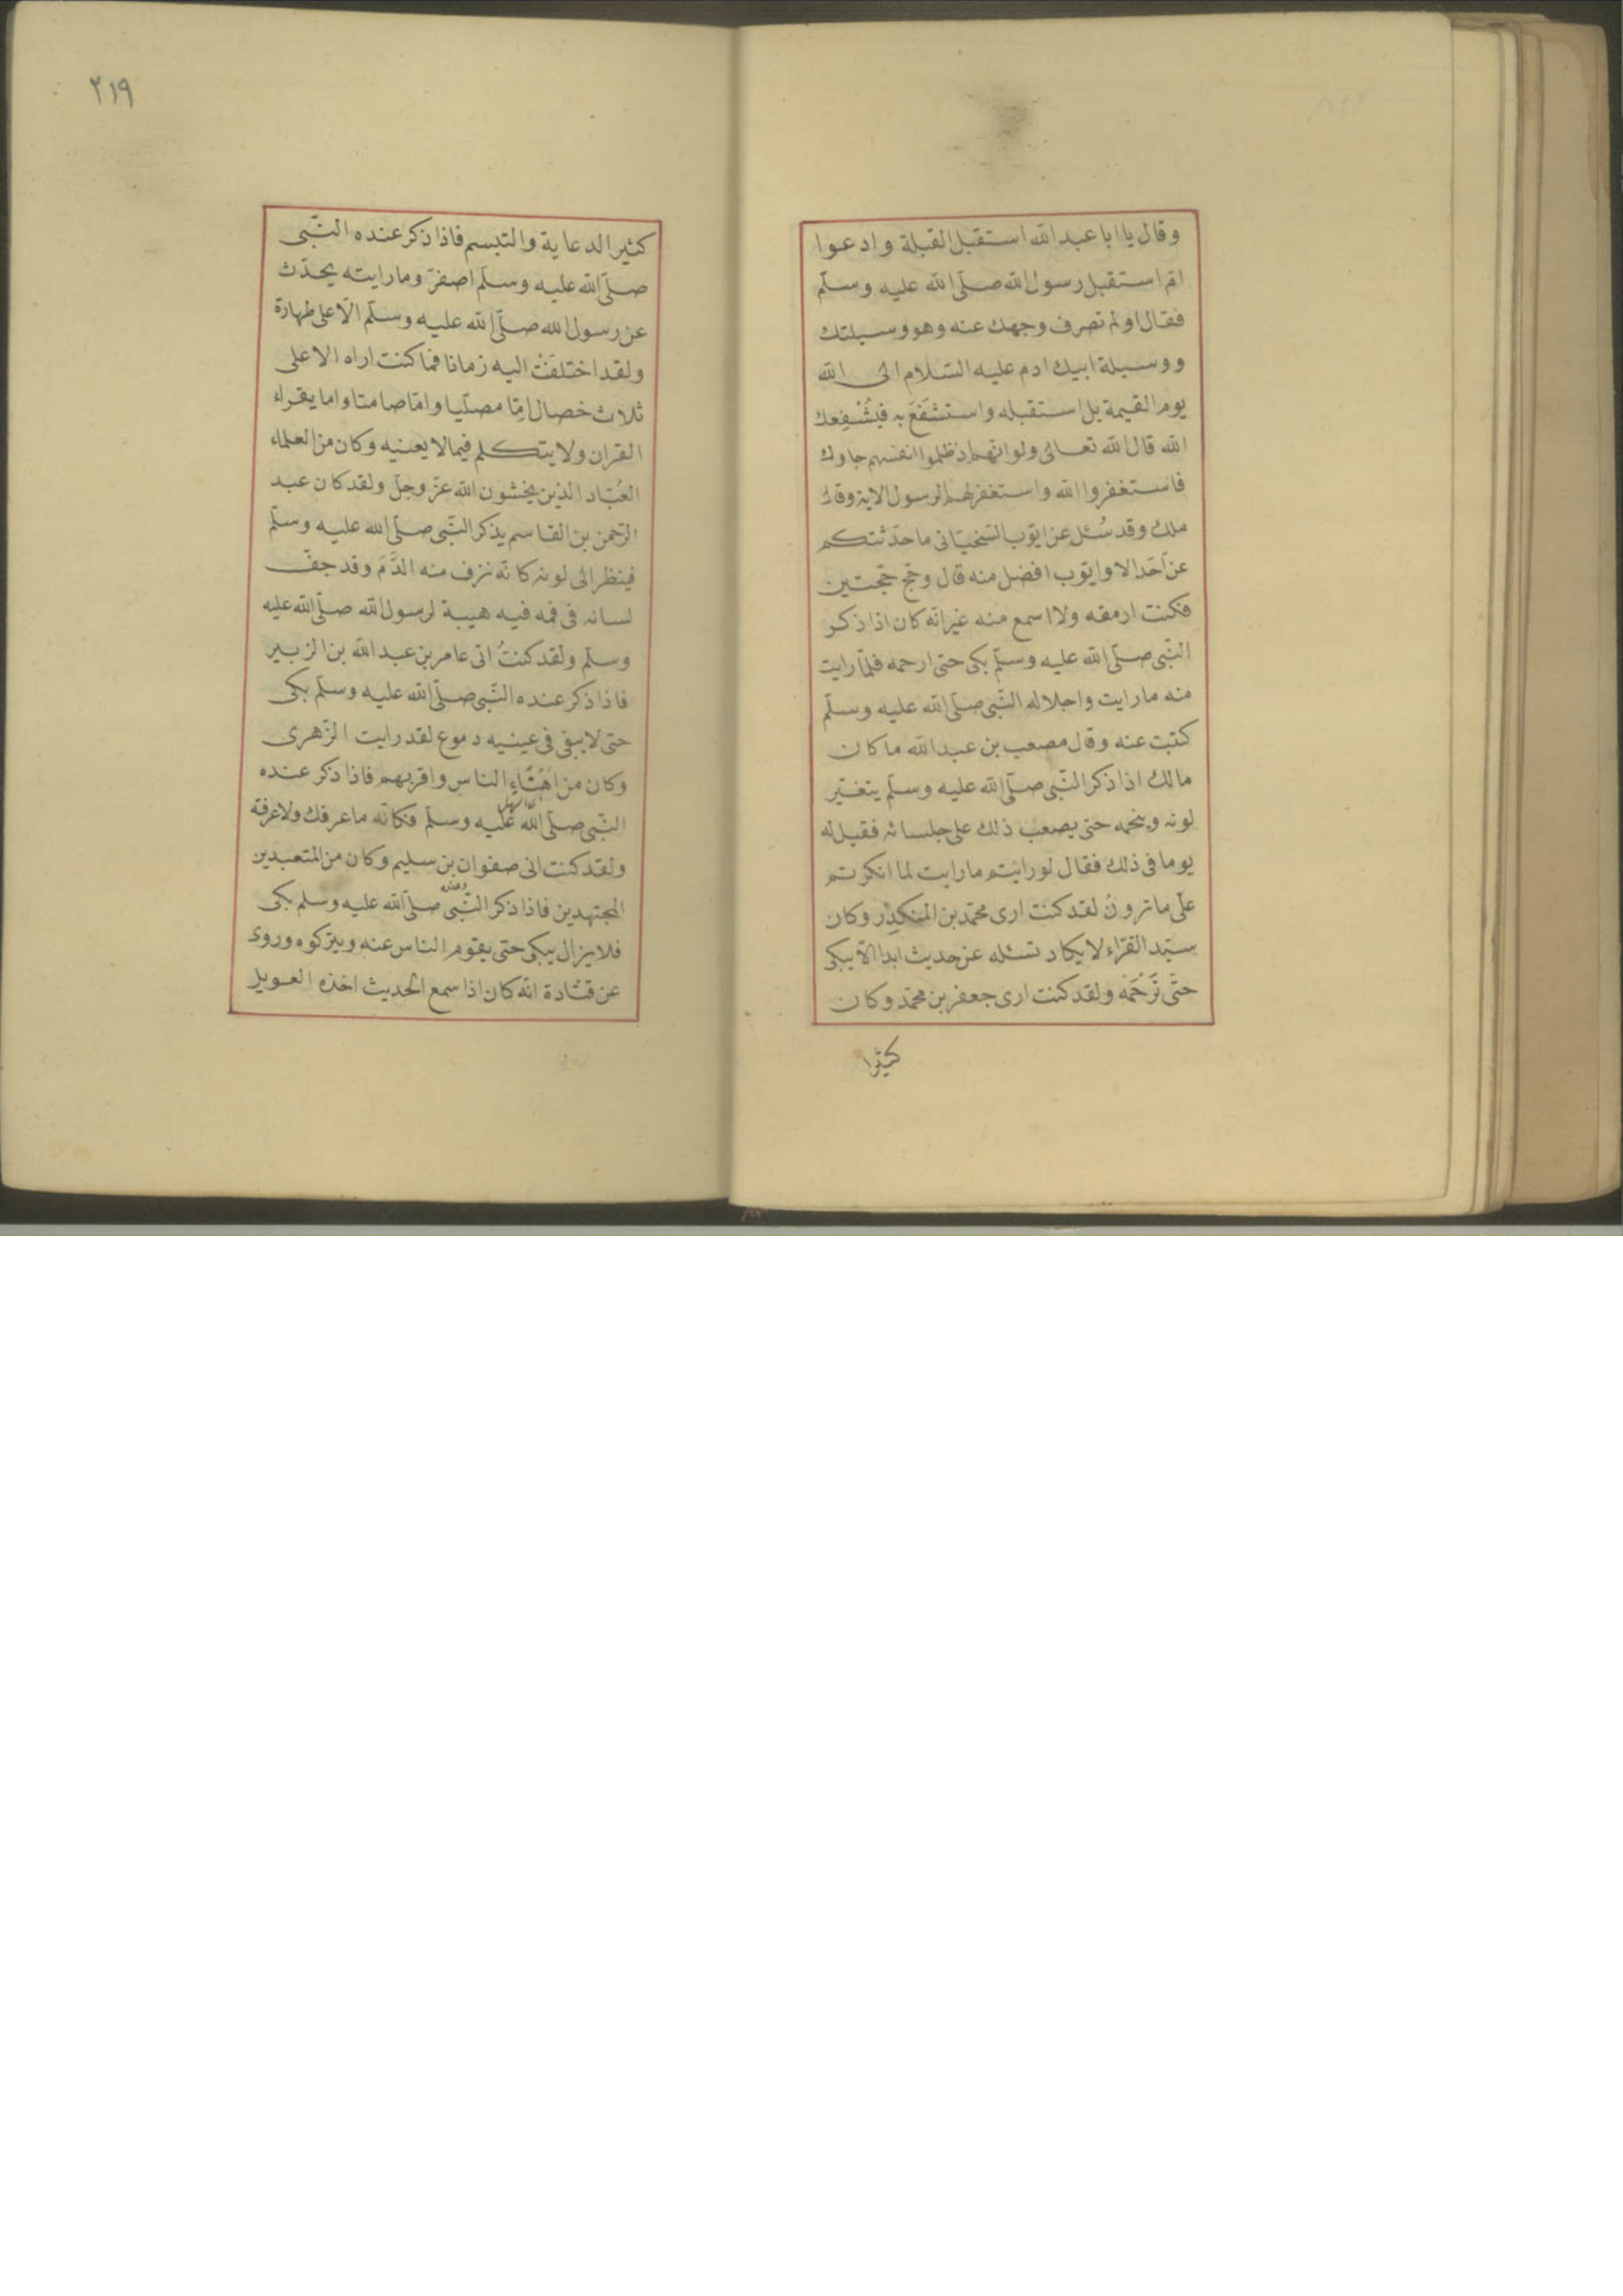 وقال يا ابا عبد الله استقبل القبلة وادعوا
ام استقبل رسول الله صلّى الله عليه وسلّم
فقال اولم تصرف وجهك عنه وهو وسيلتك
ووسيلة ابيك ادم عليه السّلام الى الله
يوم القيمة بل استقبله واستشفَعَ به فيُشْفِعك
الله قال الله تعالى ولو انّهم اذ ظلموا انفسهم جاوك
فاستغفروا الله واستغفر لهم الرسول الاية وقال
ملك وقد سُئل عن ايّوب السّختيانى ما حدّثتكم
عن اَحَد الا وايّوب افضل منه قال وحجّ حجّتين
فكنت ارمقه ولا اسمع منه غير انّه كان اذا ذكر
النّبى صلّى الله عليه وسلّم بكى حتى ارحمه فلمّا رايت
منه ما رايت واجلاله النّبى صلّى الله عليه وسلّم
كتبت عنه وقال مصعب بن عبد الله ما كان
مالك اذا ذكر النّبى صلّى الله عليه وسلّم يتغيّر
لونه وينحمه حتى يصعب ذلك على جلسائه فقيل له
يوما فى ذلك فقال لو رايتم ما رايت لما انكرتم
علّى ما ترونْ لقد كنت ارى محمّد بن المنكدِر وكان
سيّد القرّاء لا يكاد تسئله عن حديث ابدا الّا يبكى
حتّى نَرْحَمَه ولقد كنت ارى جعفر بن محمّد وكان
كثيرا
٢١٩
كثير الدعاية والتبسم فاذا ذكر عنده النّبى
صلّى الله عليه وسلّم اصفرّ وما رايته يحدّث
عن رسول الله صلّى الله عليه وسلّم الّا على طهارة
ولقد اختلفَتْ اليه زمانا فما كنت اراه الا على
ثلاث خصال امّا مصلّيا وامّا صامتا واما يقراء
القران ولا يتكلم فيما لا يعنيه وكان من العلماء
العُبّاد الذين يخشون الله عزّ وجلّ ولقد كان عبد
الرّحمن بن القاسم يذكر النّبى صلّى الله عليه وسلّم
فينظر الى لونه كانّه نزف منه الدَّمَ وقد جفّ
لسانه فى فمه فيه هيبة لرسول الله صلّى الله عليه
وسلّم ولقد كنتُ اتى عامر بن عبد الله بن الزبير
فاذا ذكر عنده النّبى صلّى الله عليه وسلّم بكى
حتى لا يبقى فى عينيه دموع لقد رايت الزّهرى
وكان من اَهْنَاءِ الناس واقربهم فاذا ذكر عنده
النّبى صلّى الله عليه وسلّم فكانّه ما عرفك ولا عرفة
ولقد كنت اتى صفوان بن سليم وكان من المتعبدين
المجتهدين فاذا ذكر النّبى صلّى الله عليه وسلم بكى
فلا يزال يبكى حتى يقوم الناس عنه ويتركوه وروى
عن قتادة انّه كان اذا سمع الحديث اخذه العويل